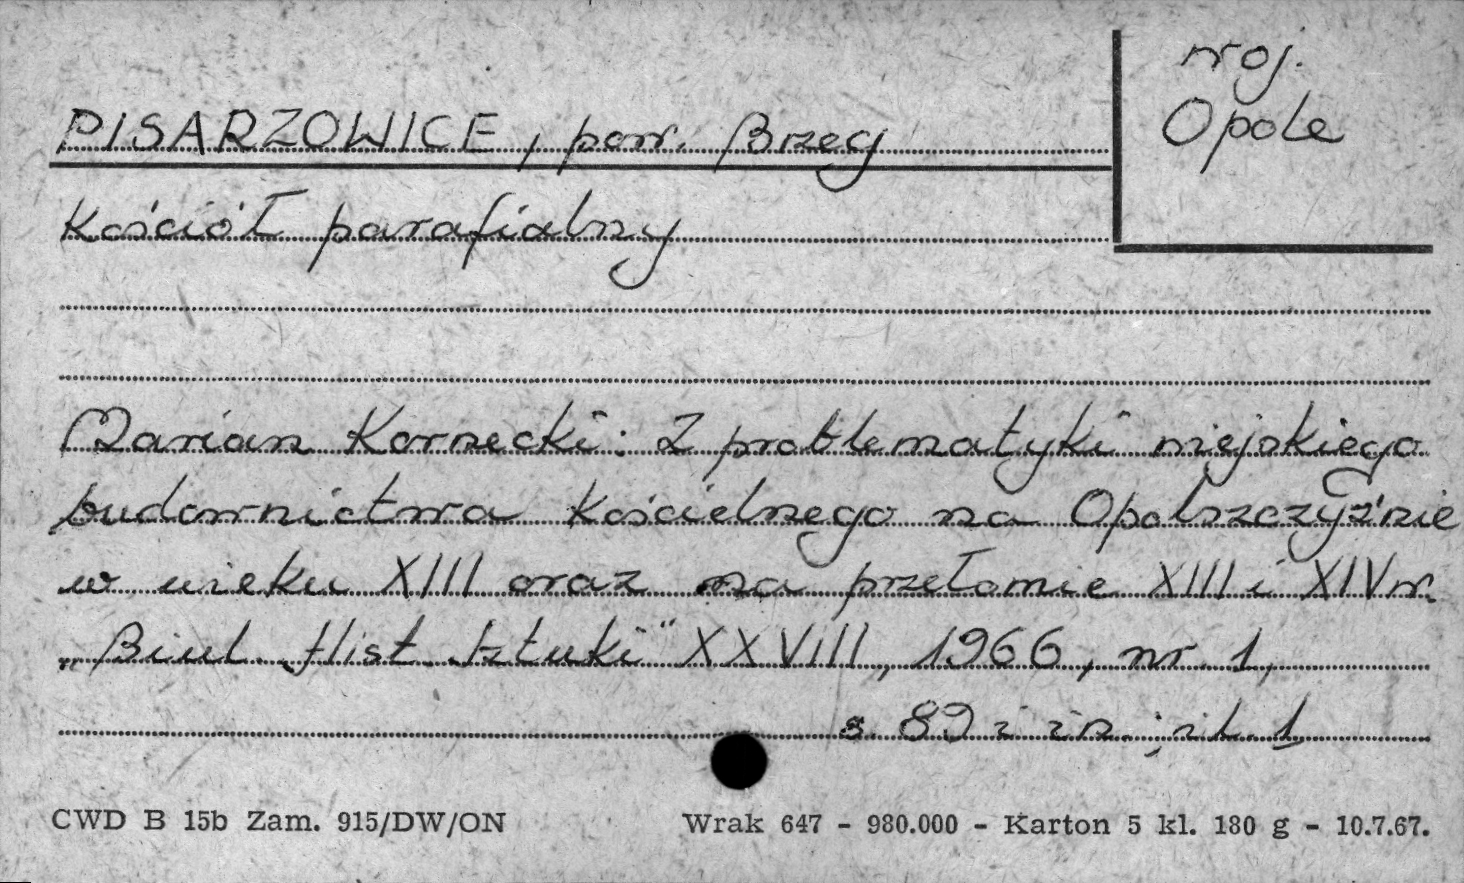 woj.
Opole
PISARZOWICE, pow. Brzeg
Kościół parafialny
Marian Kornecki: Z problematyki miejskiego
budownictwa kościelnego na Opolszczyźnie
w wieku XIII oraz na przełomie XIII i XIV w.
„Biul. Hist. Sztuki" XXVIII, 1966, nr 1,
s. 89 i in.; il. 1
CWD B 15b Zam. 915/DW/ON Wrak 647 - 980.000 - Karton 5 kl. 180 g - 10.7.67.